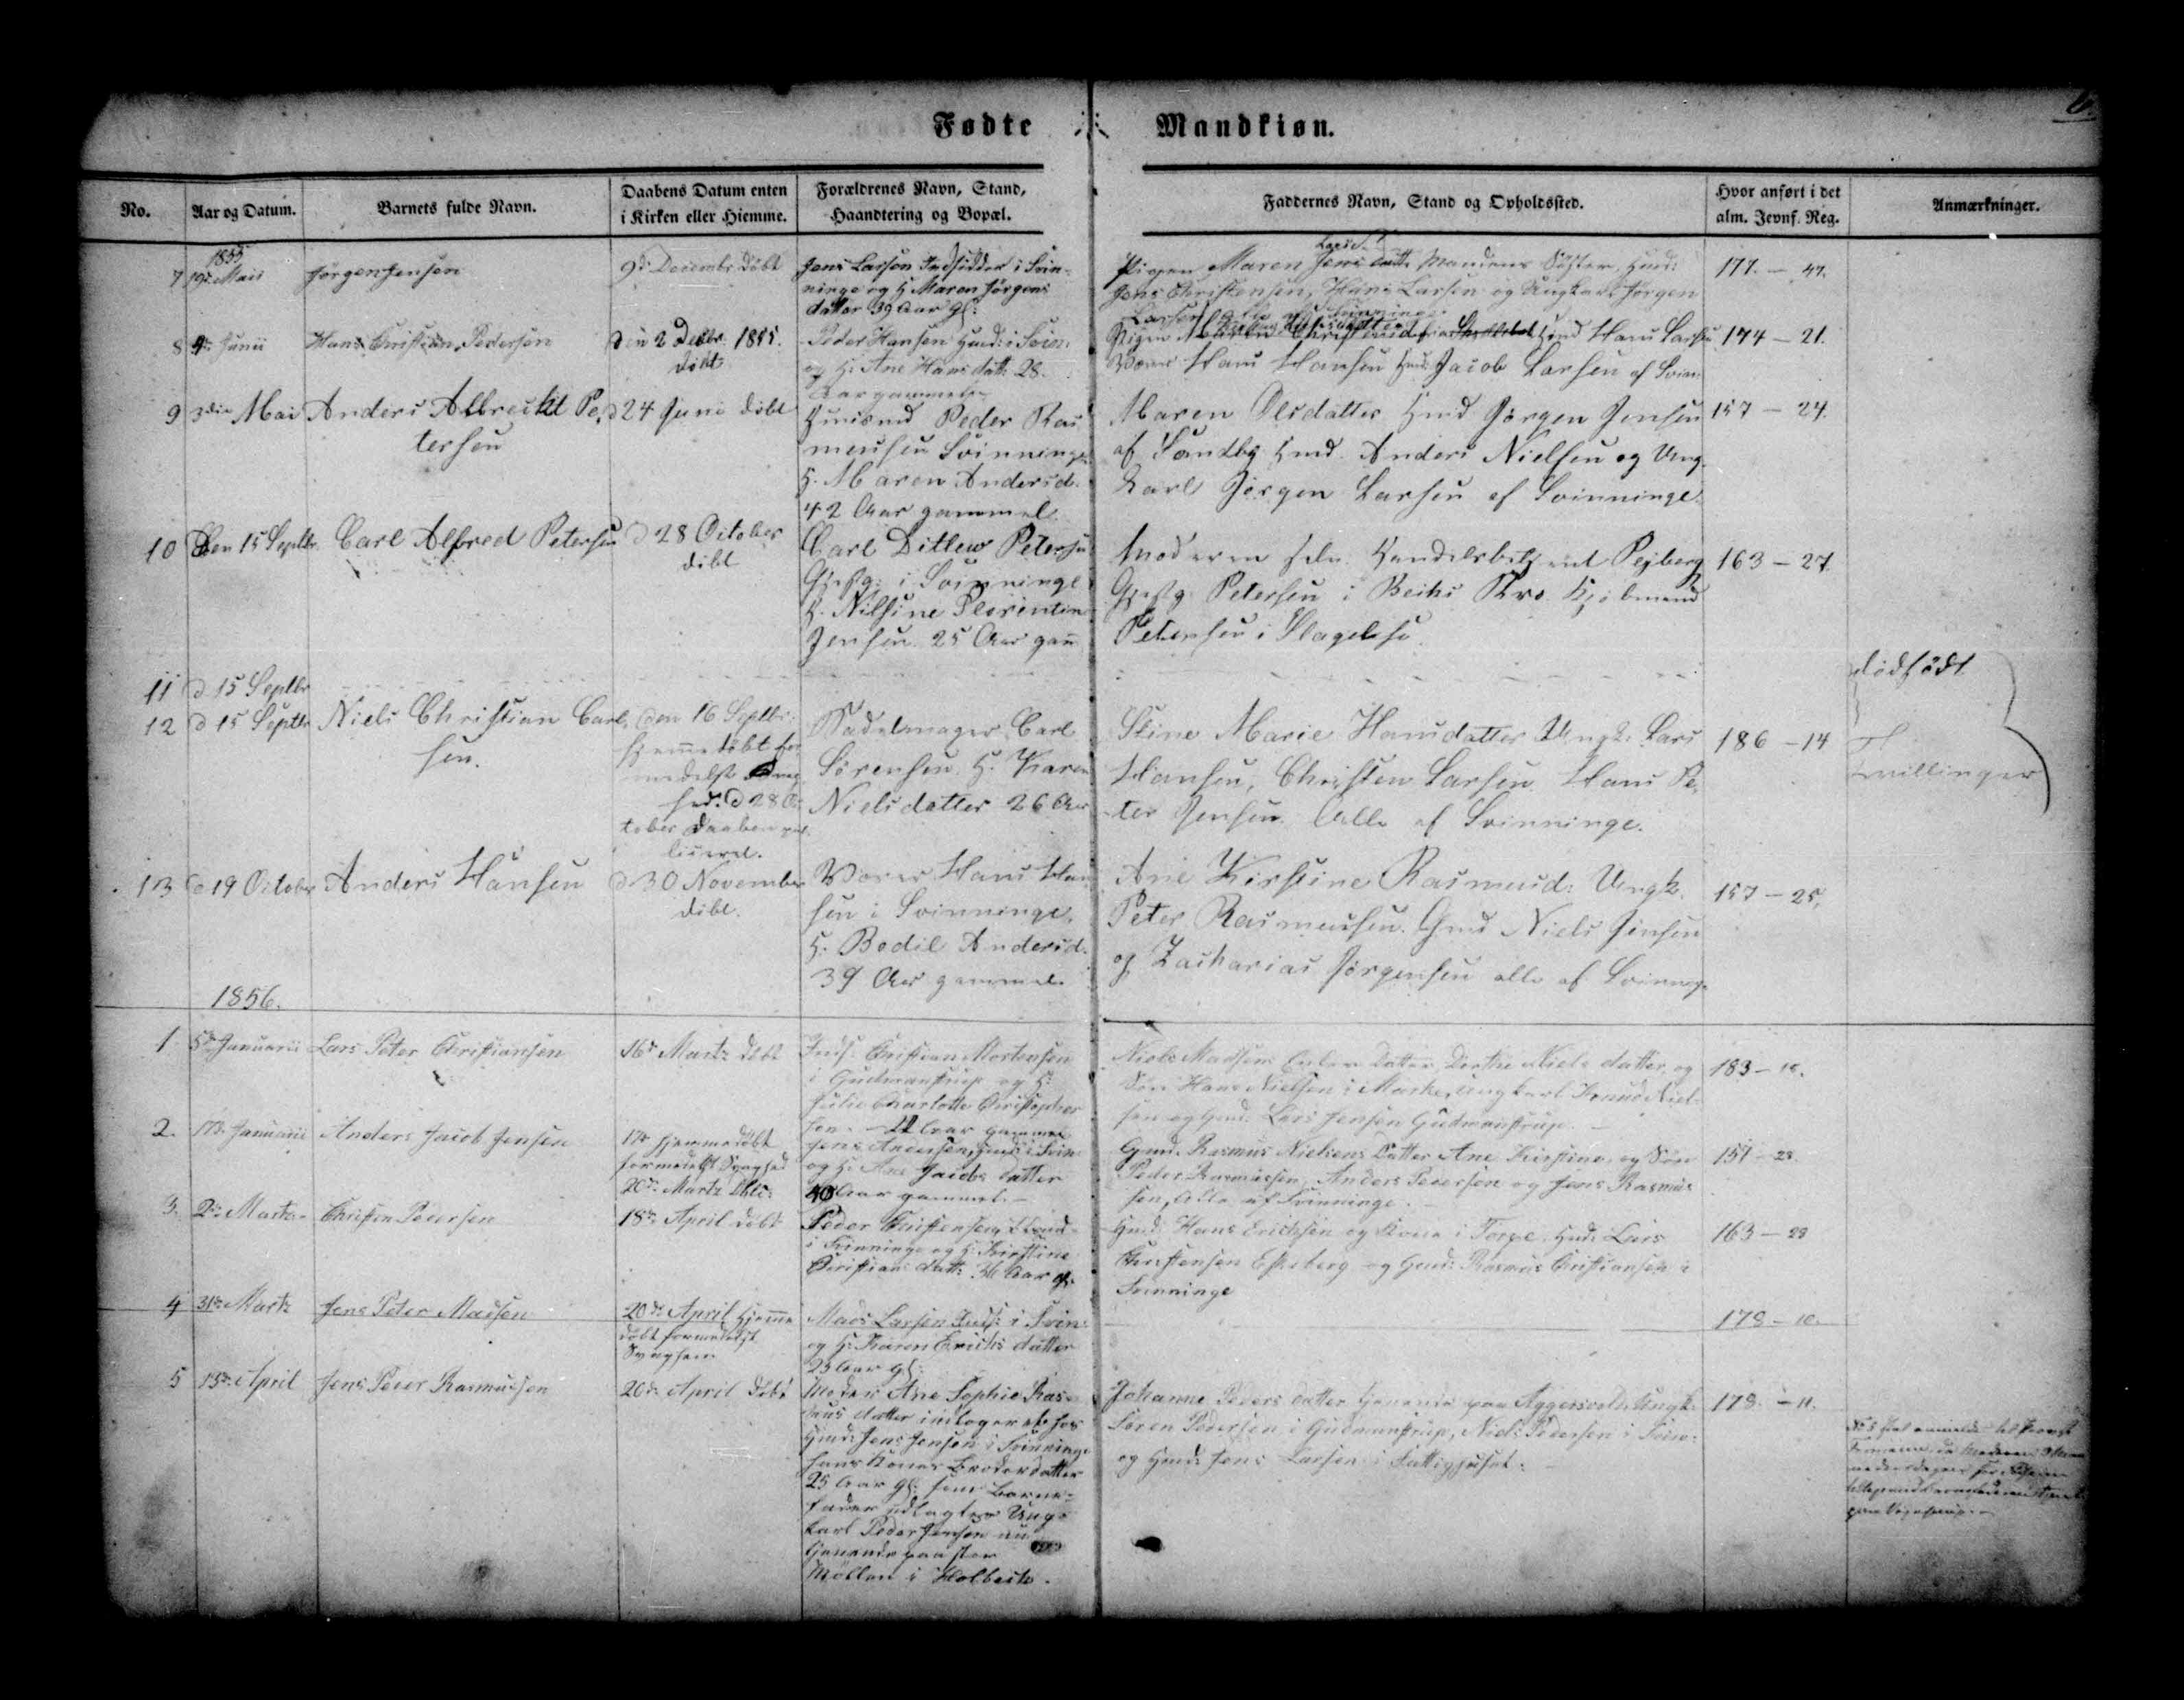 Fødte Mandkiøn.
6.
No.
Aar og Datum.
Barnets fulde Navn.
Daabens Datum enten
i Kirken eller Hiemme.
Forældrenes Navn, Stand,
Haandtering og Bopæl.
Faddernes Navn, Stand og Opholdssted.
Hvor anført i det
alm. Jevnf. Reg.
Anmærkninger.
1855
7 19de Maii
Jørgen Jensen
9de Decembr. døbt
Jens Larsen Indsidder i Svin-
ninge og H. Maren Jørgens
datter 39 Aar gl:
Pigen Maren Mandens Søster, Hmd:
Jens Christensen, Hans Larsen og Ungkarl Jørgen
Larsen
177. – 47.
8 Junii
Hans Christian Pedersen
den 2 Decbr. 1855.
døbt
Peder Hansen Hmd: i Svin:
og H: Ane Hansdatt: 28.
Aar gammel
Pigen Maren Hmd Hans Larsen
Hans Hansen Hmd: Jacob Larsen af Svin:
174 – 21.
9 3die Mai
Anders Albrecht Pe-
tersen
d 24 Juni døbt
Huusmd Peder Ras-
mussen Svinninge
H. Maren Andersd.
42 Aar gammel.
Maren Olsdatter Hmd Jørgen Jensen
af Sandby Hmd. Anders Nielsen og Ung-
karl Jørgen Larsen af Svinninge.
157 – 24.
10 Den 15 Septbr
Carl Alfred Petersen
d 28 October
døbt
Carl Ditlev Petersen
i Svinninge
H. Nilsine Florentine
Jensen. 25 Aar gam
Moderen selv. Pejberg
Petersen i Kro
Petersen i Slagelse.
163 – 27.
11 d 15 Septbr
dødfødt
12 d 15 Septbr
Niels Christian Carl-
sen.
den 16 Septbr:
hjemmedøbt for-
medelst Svag-
hed. d 28 Oc-
tober Daaben pub-
liceret.
Sadelmager Carl
Sørensen H. Karen
Nielsdatter 26 Aar
Stine Marie Hansdatter Ungk. Lars
Hansen, Christen Larsen Hans Pe-
ter Jensen. Alle af Svinninge.
186 – 14
Tvillinger
13 d 19 October
Anders Hansen
d 30 November
døbt.
Hans Han-
sen i Svinninge.
H. Bodil Andersd.
39 Aar gammel.
Ane Kirstine Rasmusd: Ungk.
Peter Rasmussen. Gmd Niels Jensen
og Zacharias Jørgensen alle af Svinninge.
157 – 25.
1856.
1 5te Januarii
Lars Peter Christiansen
16de Marts døbt
Inds: Christian Mortensen
i Gudmandstrup og H:
Julie Charlotte Christopher
sen. – Aar gammel
Niels Madsens Datter Dorthe Niels datter og
Søn Hans Nielsen i Marke, Ungkarl Knud Niel-
sen og Gmd. Lars Jensen Gudmandstrup. –
183 –
2. 17de Januarii
Anders Jacob Jensen
17de hjemmedøbt
formedelst Svaghed
20de Marts
Jens Andersen, Hmd: i Svin:
og H: Ane Jacobs datter
40 Aar gammel. –
Gmd. Rasmus Nielsens Datter Ane Kirstine og Søn
Peder Rasmussen, Anders Pedersen og Jens Rasmus
sen, Alle af Svinninge. –
151 – 28.
3. 2den Marts
Christen Pedersen
18de April døbt
Peder Christensen,
i Svinninge og H: Kirstine
Christians datt: Aar gl:
Hmd: Hans Ericksen og Kone i Torpe, Hmd: Lars
Christensen Eskeberg og Gmd: Rasmus Christiansen i
Svinninge
163 – 29
4 31te Marts
Jens Peter Madsen
20de April Hjemme
døbt formedelst
Svaghed
Mads Larsen Inds: i Svin:
og H: Karen Erichs datter
25 Aar gl:
178 – 10.
5 13de April
Jens Peter Rasmussen
20de April døbt
Moder: Ane Sophie Ras-
mus datter indlogeret hos
Hmd: Jens Jensen i Svinninge
hans Kones Broderdatter
25 Aar gl: som Barne-
fader udlagtes Ung-
karl Peder Jensen nu
tjenende paa
Møllen i Holbæk.
Johanne Peders datter tjenende paa Aggersvold, Ungk:
Søren Pedersen i Gudmandstrup, Niels Pedersen i Svin:
og Hmd: Jens Larsen i Fattighuset. –
178. – 11.